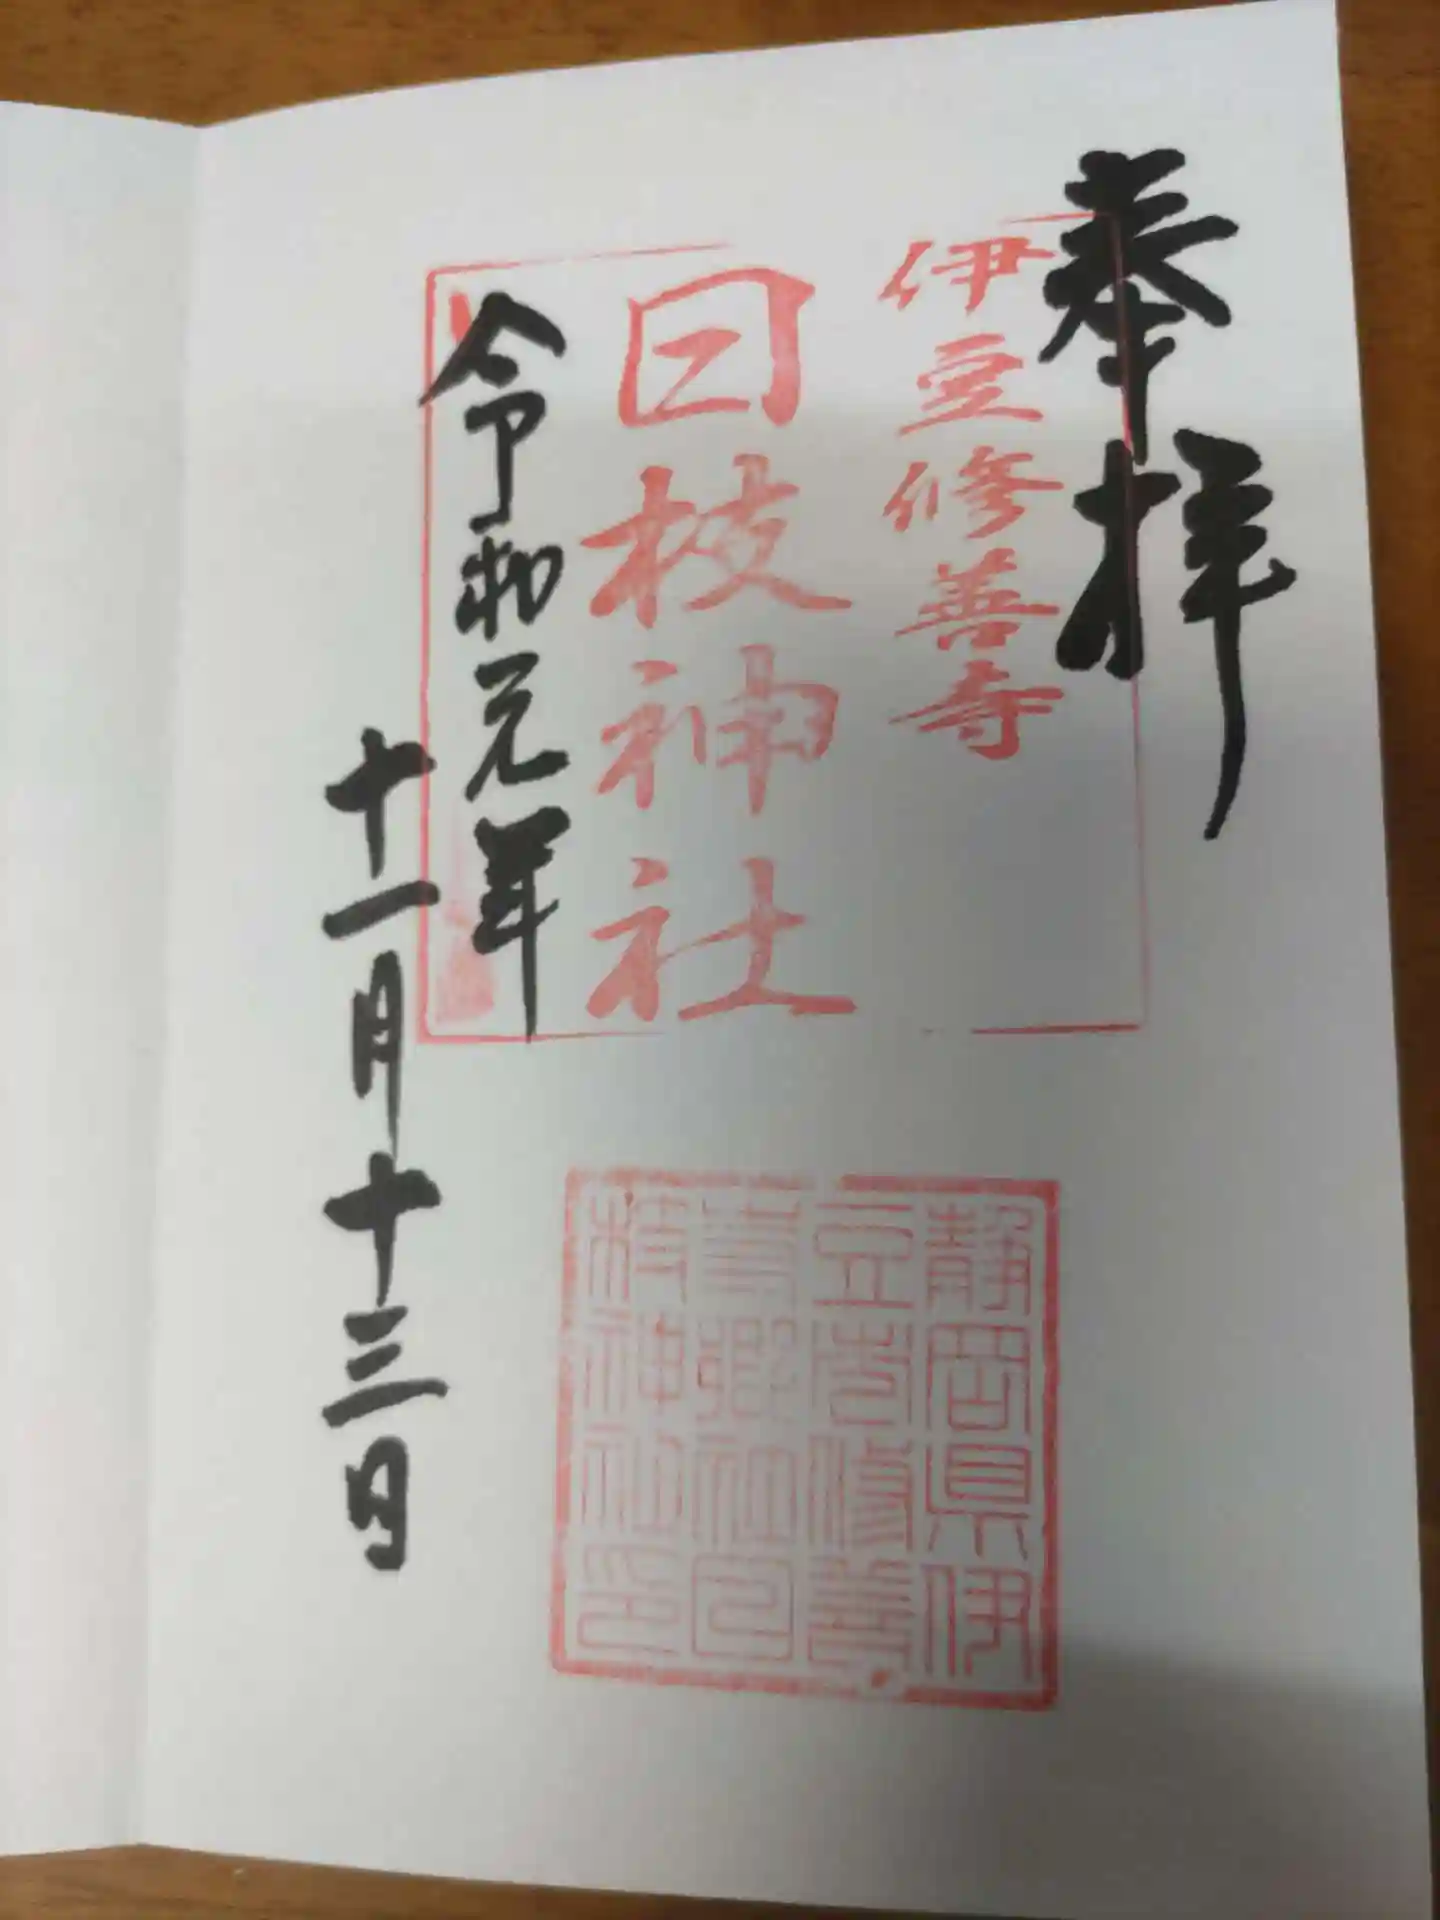 奉拝
伊豆修善寺
日枝神社
令和元年
十一月十三日
静岡県伊
豆市修善
寺郷社日
枝神社印